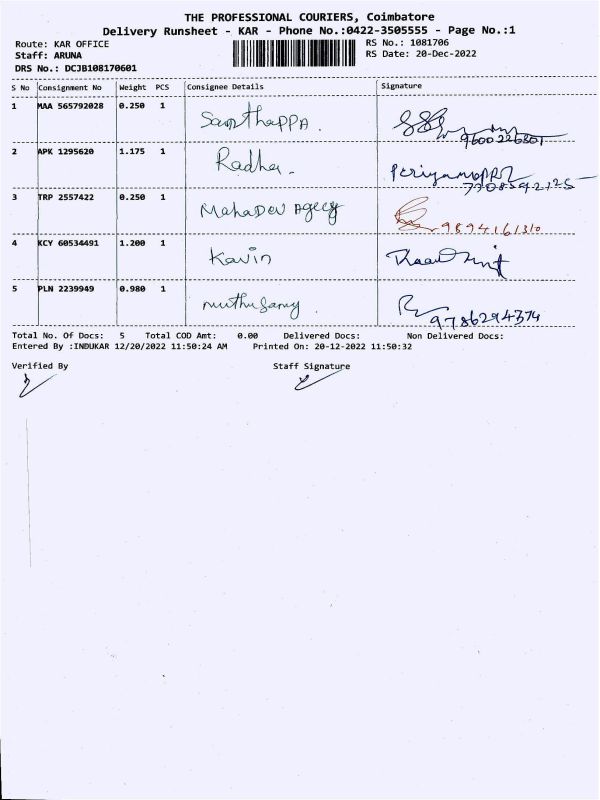 THE PROFESSIONAL COURIERS, Coimbatore
Delivery Runsheet - KAR - Phone No.:0422-3505555 - Page No.:1
Route: KAR OFFICE
RS No.: 1081706
Staff: ARUNA
RS Date: 20-Dec-2022
DRS No.: DCJB108170601
S No Consignment No Weight PCS Consignee Details Signature
1 MAA 565792028 0.250 1 SanthappA. 9600226801
2 APK 1295620 1.175 1 Radha. 7708592125
3 TRP 2557422 0.250 1 MahaDev Agecy 9894161310
4 KCY 60534491 1.200 1 Kavin
5 PLN 2239949 0.980 1 muthusamy 9786294374
Total No. Of Docs: 5 Total COD Amt: 0.00 Delivered Docs: Non Delivered Docs:
Entered By :INDUKAR 12/20/2022 11:50:24 AM Printed On: 20-12-2022 11:50:32
Verified By Staff Signature